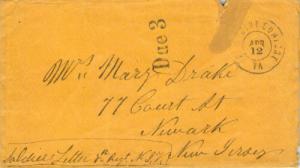 Due 3
APR
12
VA
Mrs Mary Drake
77 Court St
Newark
New Jersey
Soldier's Letter Regt N.J.V.